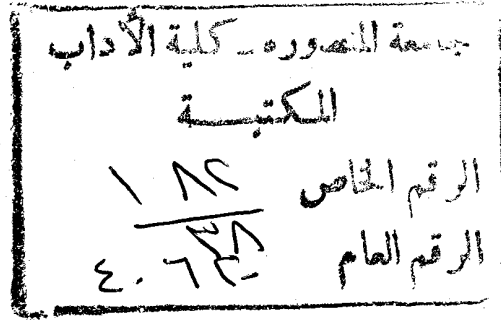 جامعة المنصوره - كلية الآداب
المكتبة
الرقم الخاص ١٨٢
الرقم العام